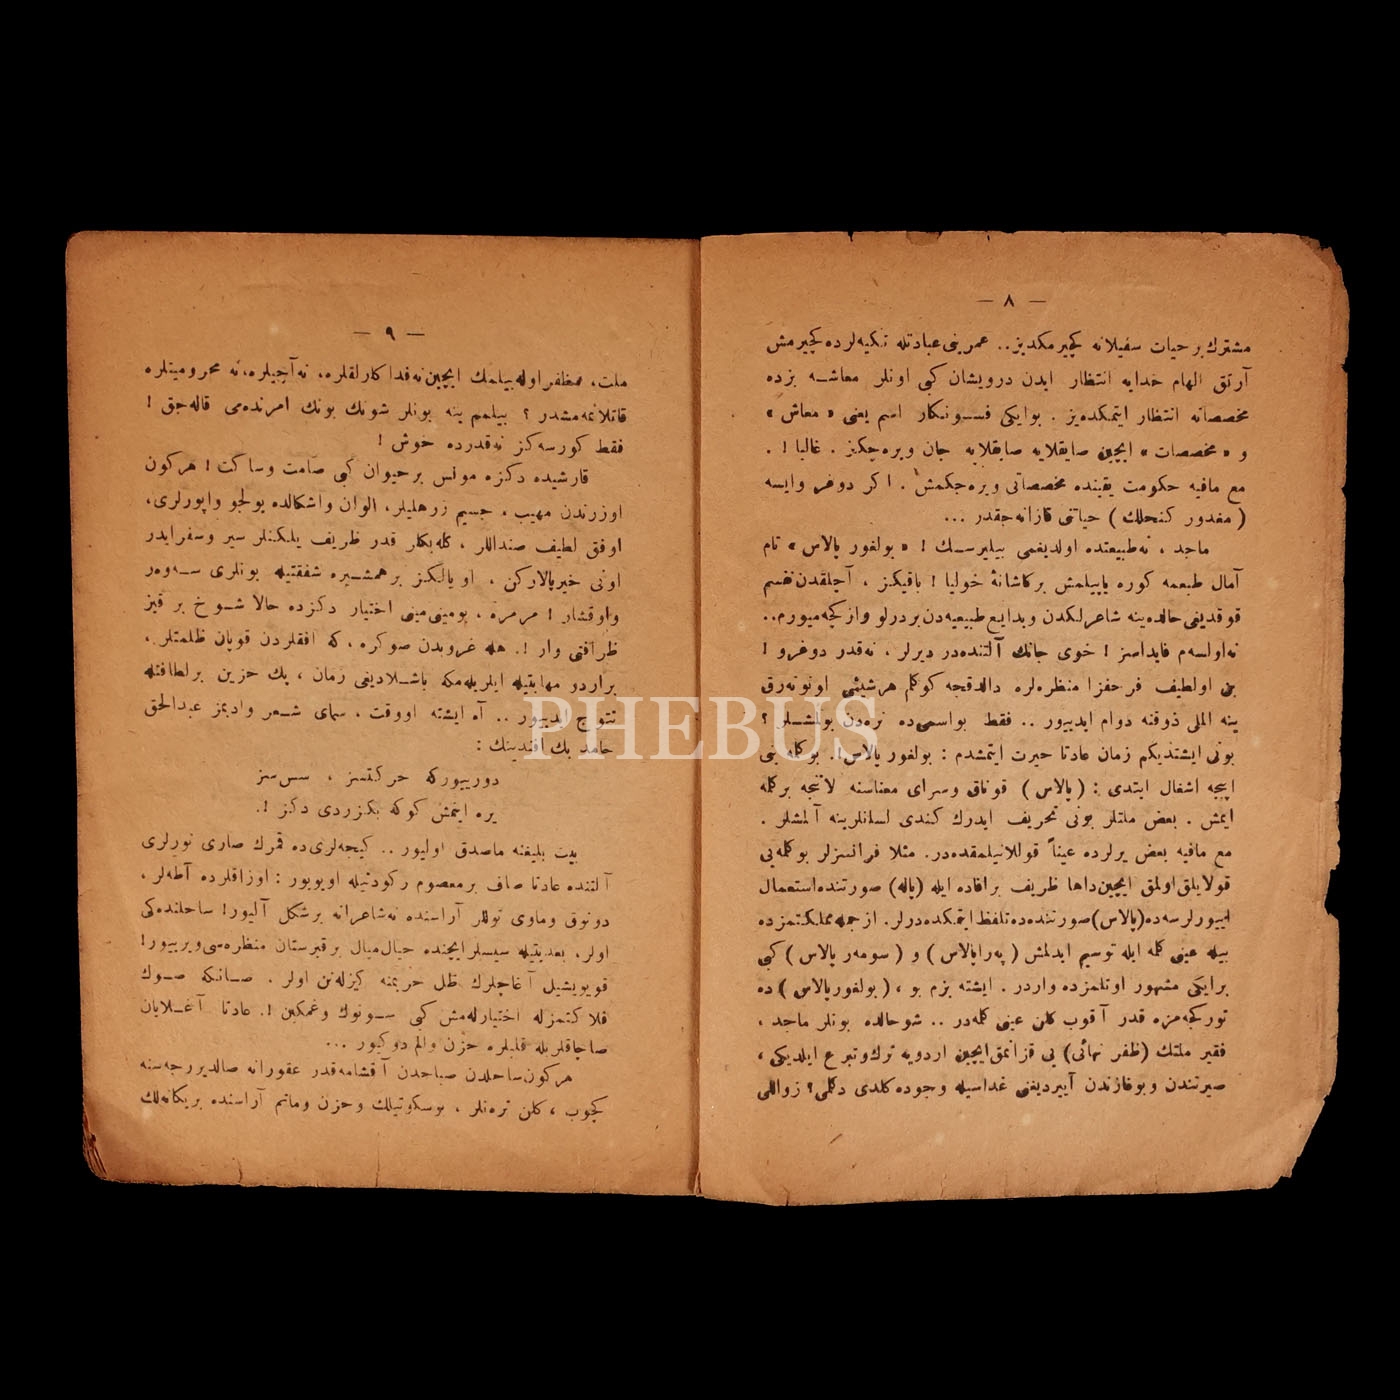 — ٨ —
مشترك بر حيات سفيلانه كچيرمكديز.. عمرينى عبادتله تكيه‌لرده كچيرمش
آرتق الهام خدايه انتظار ايدن درويشان كبى اونلر معاشــه بزده
مخصصاته انتظار ايتمكده‌يز . بوايكى فســونكار اسم يعنى « معاش »
و « مخصصات » ايچين صايقلايه صايقلايه جان ويره‌جكيز . غالبا ! .
مع مافيه حكومت يقينده مخصصاتى ويره‌جكمش . اكر دوغر وايسه
( مغدور كنجلك ) حياتى قازانه‌جقدر ...
ماجد ، نه‌طبيعتده اولديغمى بيليرســك ! « بولغور پالاس » تام
آمال طبعمه كوره ياپيلمش بركاشانهٔ خوليا ! باقيكز ، آچلقدن نفسم
قوقديغى حالده‌ينه شاعرلكدن وبدايع طبيعيه‌دن بردرلو وازكچه‌ميورم..
نه‌اولسه‌م فايداسز ! خوى جانك آلتنده‌در ديرلر ، نه‌قدر دوغرو !
بن اولطيف فرحفزا منظره‌لره دالدقجه كوكلم هرشيئى اونوته‌رق
ينه المى ذوقنه دوام ايدييور .. فقط بواسمى‌ده نره‌دن بولمشــلر ؟
بونى ايشتديكم زمان عادتا حيرت ايتمشدم : بولغور پالاس!. بوكله بنى
اپيجه اشغال ايتدى : ( پالاس ) قوناق وسراى معناسنه لاتنجه بركله
ايمش . بعض ملتلر بونى تحريف ايدرك كندى لسانلرينه آلمشلر .
مع مافيه بعض يرلرده عيناً قوللانيلمقده‌در. مثلا فرانسزلر بوكله‌يى
قولايلق‌اولمق ايچين‌داها ظريف برافاده ايله (پاله) صورتنده‌استعمال
ايييورلرسه‌ده(پالاس)صورتنده‌ده‌تلفظ ايتمكده‌درلر. ازجمله‌مملكتمزده
بيله عينى كله ايله توسيم ايدلمش ( پەراپالاس ) و ( سومەر پالاس ) كبى
برايكى مشهور اوتلمزده واردر . ايشته بزم بو ، ( بولغورپالاس ) ده
توركجه‌مزه قدر آقوب كلن عينى كله‌در .. شوحالده بونلر ماجد ،
فقير ملتك (ظفر نهائى) يى قزانمق‌ايچين اردويه ترك‌وتبرع ايلديكى ،
صيرتندن وبوغازندن آييرديغى غداسيله وجوده‌كلدى دكلمى؟ زواللى
— ٩ —
ملت، مظفر اوله‌بيلمك ايچين‌نه‌فداكارلقلره، نه‌آجيلره، نه محروميتلره
قاتلانمه‌مشدر ؟ بيلمم ينه بونلر شونك بونك امرنده‌مى قاله‌جق !
فقط كورسه‌كز نه‌قدرده خوش !
قارشيده دكزه مونس برحيوان كبى صامت وساكت ! هركون
اوزرندن مهيب ، جسيم زرهليلر، الوان واشكالده يولجو واپورلرى،
اوفق لطيف صنداللر ، كله‌بكلر قدر ظريف يلكنلر سير وسفرايدر
اونى خيرپالاركن ، او يالكز برهمشــيره شفقتيله بونلرى ســه‌وه‌ر
واوقشار ! مرمره ، يومينى‌مينى اختيار دكزده حالا شــوخ بر قيز
ظرافتى وار !. هله غروبدن صوكره ، كه افقلردن قوپان ظلمتلر،
براردو مهابتيله ايلريله‌مكه باشــلاديغى زمان ، پك حزين برلطافتله
تتوج ايدييور .. آه ايشته اووقت ، سماى شــعر وادبمز عبدالحق
حامد بك افندينك :
دورييوركه حركتسز ، سس‌سز
يره ايتمش كوكه بكزردى دكز !.
بيت بليغنه ماصدق اوليور .. كيجه‌لرى‌ده قمرك صارى نورلرى
آلتنده عادتا صاف برمعصوم ركودتيله اويويور : اوزاقلرده آطه‌لر ،
دونوق وماوى توللر آراسنده نه‌شاعرانه برشكل آليور! ساحلنده‌كى
اولر، بعديتيله سيسلرايچنده حيال‌ميال برقبرستان منظره‌سى‌ويرييور!
قويويشيل آغاچلرك ظل حزيننه كيزله‌نن اولر . صــانكه صــوك
فلاكتمزله اختيارله‌مش كبى ســونوك وغمكين !. عادتا آغــلايان
صاچاقلريله قلبلره حزن والم دوكيور ...
هركون‌ساحلدن صباحدن آقشامه‌قدر عقورانه صالديررجه‌سنه
كچوب ، كلن ترەنلر ، بوسكوتيلك وحزن وماتم آراسنده بريكانه‌لك
PHEBUS